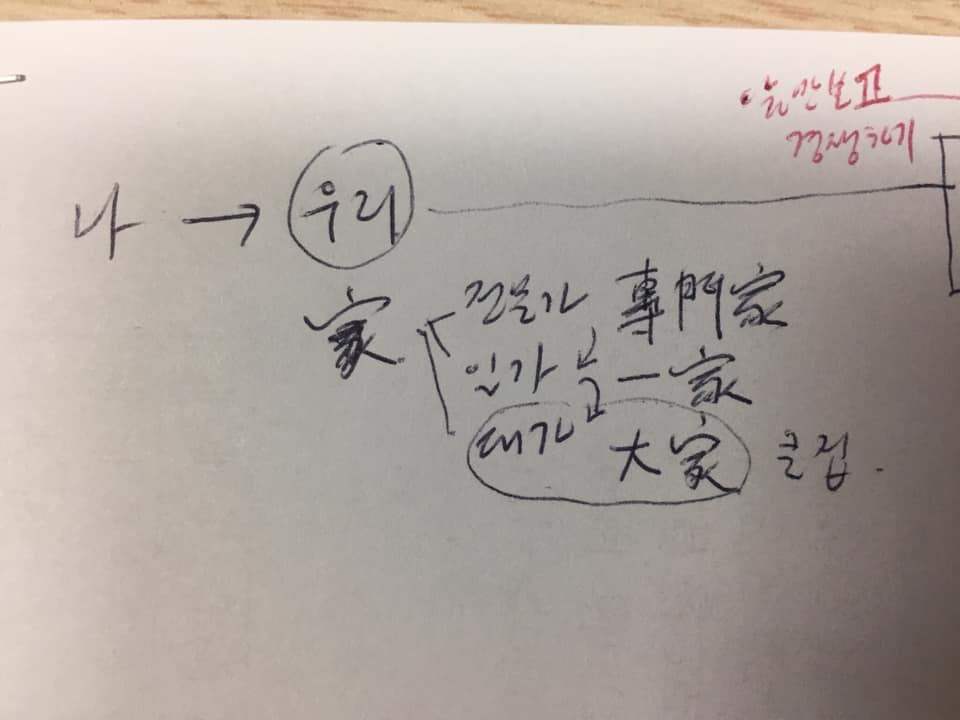 앞만보고
경쟁하기
나 → 우리
家 전문가 專門家
일가 一家
대가 大家 큰집.